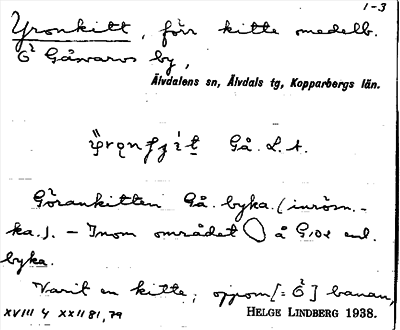 1-3
Yronkitt, förr kitte medelb.
Ö Gåsvarvs by,
Älvdalens sn, Älvdals tg, Kopparbergs län.
Gå. L. A.
Görankitten Gå. byka. (inrösn.-
ka.). – Inom området å G,02 enl.
byka.
Varit en kitte, oppom [= Ö] banan,
XVIII 4 XXII 81, 79
HELGE LINDBERG 1938.